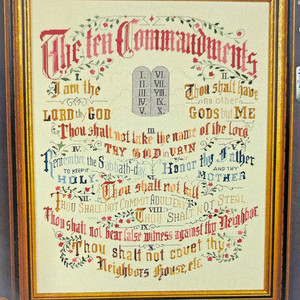 The ten Commandments
I. VI.
II. VII.
III. VIII.
IV. IX.
V. X.
I.
I am the
LORD thy GOD
II.
Thou shalt have
no other
GODS by ME
III
Thou shalt not take the name of the lord
THY GOD in VAIN
IV.
Remember the Sabbath-day
TO KEEP IT
HOLY.
V.
Honor thy Father
AND THY
MOTHER
VI.
Thou shalt not kill
VII.
THOU SHALT NOT COMMIT ADULTERY
VIII.
THOU SHALT NOT STEAL
IX
Thou shalt not bear false witness against thy Neighbor
X
Thou shalt not covet thy
Neighbors house, etc.